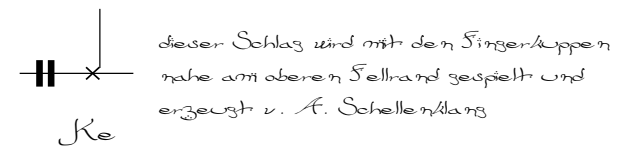 dieser Schlag wird mit den Fingerkuppen
nahe am oberen Fellrand gespielt und
erzeugt v. A. Schellenklang
Ke